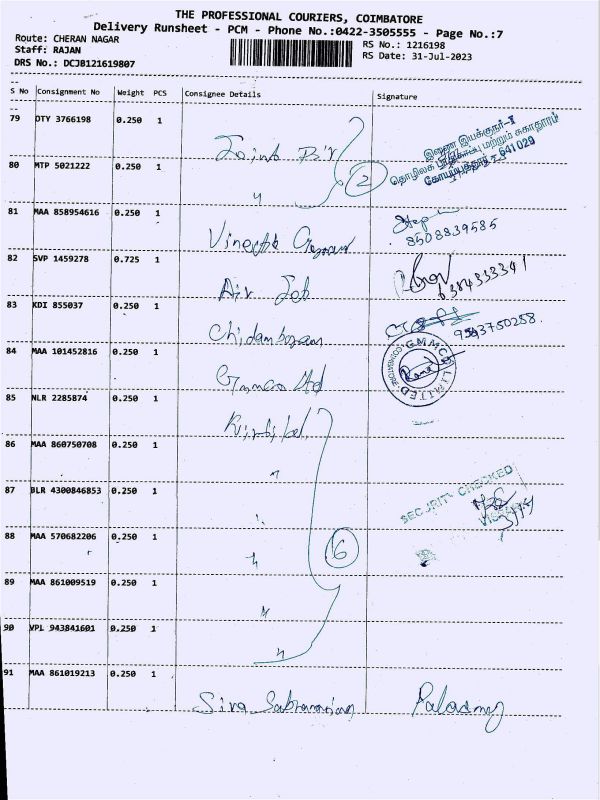 THE PROFESSIONAL COURIERS, COIMBATORE
Delivery Runsheet - PCM - Phone No.:0422-3505555 - Page No.:7
Route: CHERAN NAGAR
Staff: RAJAN
DRS No.: DCJB121619807
RS No.: 1216198
RS Date: 31-Jul-2023
S No Consignment No Weight PCS Consignee Details Signature
79 OTY 3766198 0.250 1 Joint Dir
இணை இயக்குநர்-I
தொழிலக பாதுகாப்பு மற்றும் சுகாதாரம்
கோயம்புத்தூர் - 641029
80 MTP 5021222 0.250 1 " 2
81 MAA 858954616 0.250 1
8508839585
82 SVP 1459278 0.725 1 Air Jet
6384333341
83 KDI 855037 0.250 1 Chidambaram
9543750258
84 MAA 101452816 0.250 1 Gmmco Ltd
GMMCO LIMITED COIMBATORE
85 NLR 2285874 0.250 1
86 MAA 860750708 0.250 1 "
87 BLR 4300846853 0.250 1 "
SECURITY CHECKED
88 MAA 570682206 0.250 1 " 6
89 MAA 861009519 0.250 1 "
90 VPL 943841601 0.250 1 "
91 MAA 861019213 0.250 1 Siva Subramanian